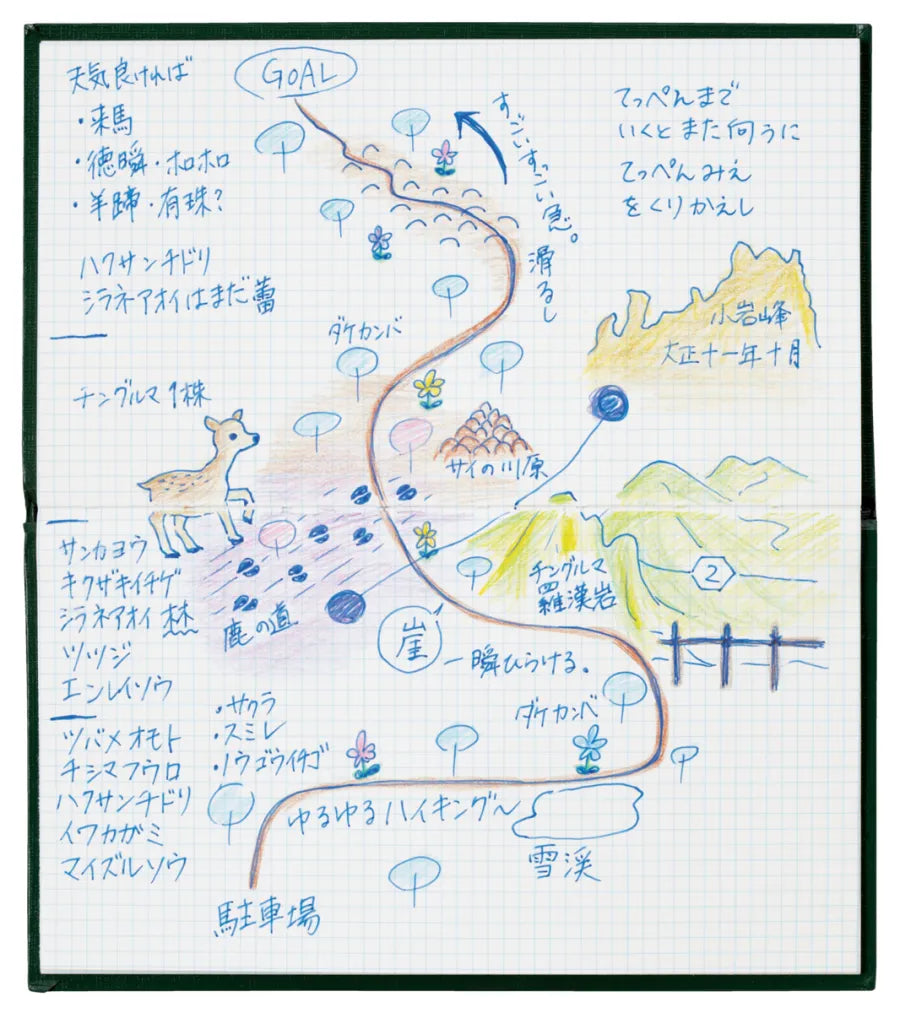 天気良ければ
・来馬
・徳瞬・ホロホロ
・羊蹄・有珠?
GOAL
すごいすっごい急。
滑るし
てっぺんまで
いくとまた向うに
てっぺんみえ
をくりかえし
ハクサンチドリ
シラネアオイはまだ蕾
小岩峰
大正十一年十月
ダケカンバ
チングルマ1株
サイの川原
サンカヨウ
キクザキイチゲ
シラネアオイ 森
ツツジ
エンレイソウ
鹿の道
チングルマ
四羅漢岩
2
崖
一瞬ひらける。
・サクラ
・スミレ
・ノウゴウイチゴ
ダケカンバ
ツバメオモト
チシマフウロ
ハクサンチドリ
イワカガミ
マイズルソウ
ゆるゆるハイキング〜
雪渓
駐車場